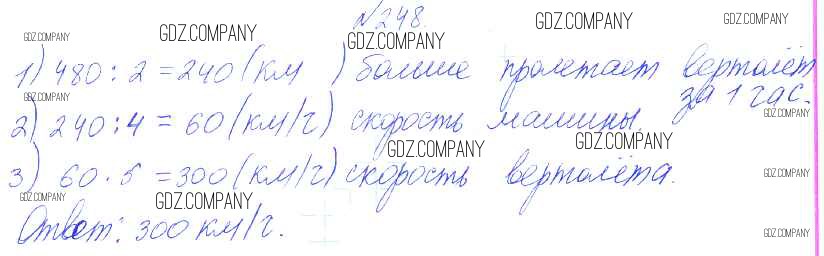 №248.
1) 480 : 2 = 240 (км ) больше пролетает вертолёт
за 1 час.
2) 240 : 4 = 60 (км/г) скорость машины.
3) 60 · 5 = 300 (км/г) скорость вертолёта.
Ответ: 300 км/г.
GDZ.COMPANY
GDZ.COMPANY
GDZ.COMPANY
GDZ.COMPANY
GDZ.COMPANY
GDZ.COMPANY
GDZ.COMPANY
GDZ.COMPANY
GDZ.COMPANY
GDZ.COMPANY
GDZ.COMPANY
GDZ.COMPANY
GDZ.COMPANY